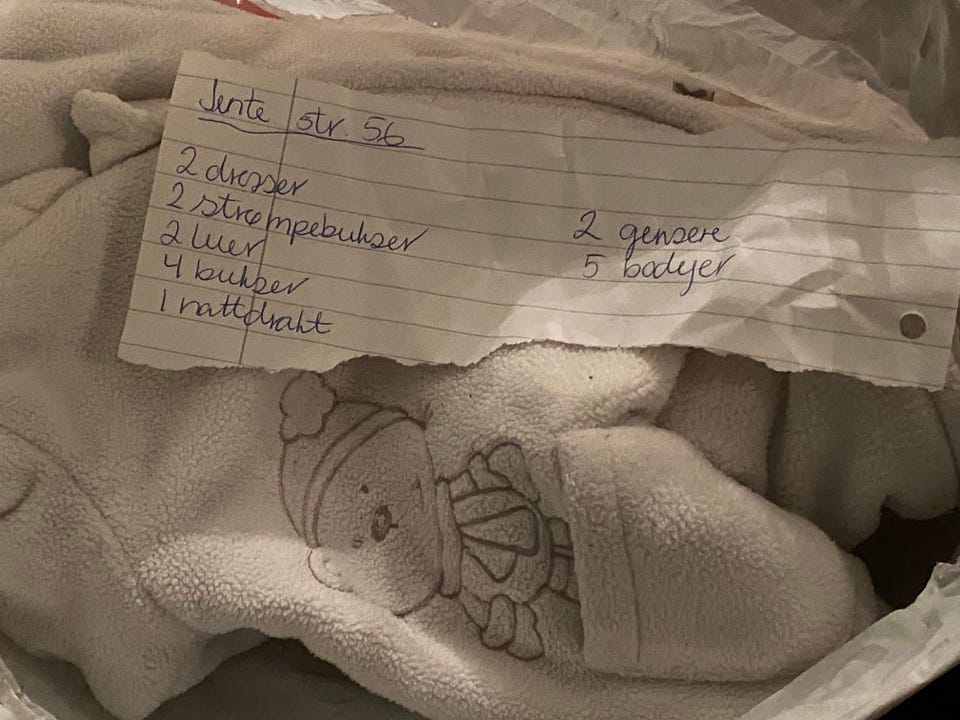 Jente str. 56
2 dresser
2 strømpebukser
2 luer
4 bukser
1 nattdrakt
2 gensere
5 bodyer